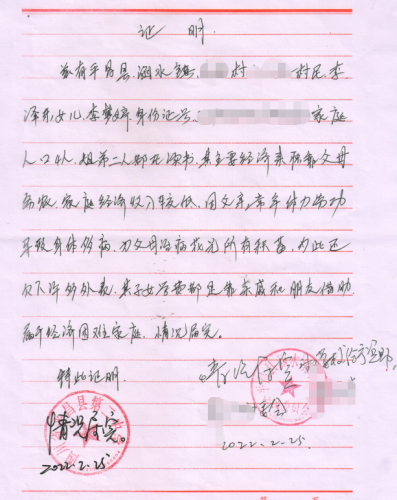 证 明
兹有平昌县涵水镇 村 村民李
泽东女儿李梦婷身份证号 家庭
人口4人,姐弟二人都在读书,其主要经济来源靠父母
务农,家庭经济收入较低,因父亲常年体力劳动
导致身体多病,为父母治病花光所有积蓄,为此还
欠下许多外款,其子女学费都是靠亲戚和朋友借助
属于经济困难家庭,情况属实
特此证明
情况属实。
2022.2.25.
2022.2.25.